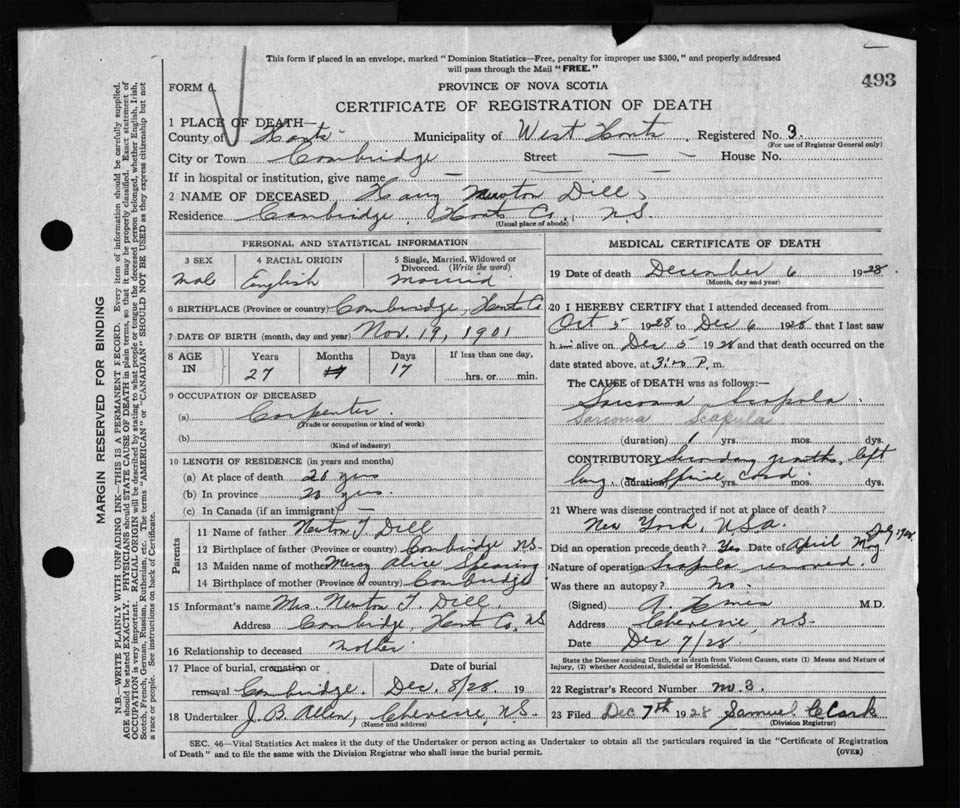 This form if placed in an envelope, marked "Dominion Statistics—Free, penalty for improper use $300," and properly addressed
will pass through the Mail "FREE."
493
FORM 6.
PROVINCE OF NOVA SCOTIA
CERTIFICATE OF REGISTRATION OF DEATH
1 PLACE OF DEATH—
County of Hants Municipality of West Hants Registered No. 3.
(For use of Registrar General only)
City or Town Cambridge Street — — House No.
If in hospital or institution, give name —
2 NAME OF DECEASED Harry Newton Dill,
Residence Cambridge, Hants Co., N.S.
(Usual place of abode)
PERSONAL AND STATISTICAL INFORMATION
3 SEX 4 RACIAL ORIGIN 5 Single, Married, Widowed or
Divorced. (Write the word)
Male English Married
6 BIRTHPLACE (Province or country) Cambridge, Hants Co
7 DATE OF BIRTH (month, day and year) Nov. 19, 1901
8 AGE IN Years Months Days If less than one day,
27 17 hrs. or min.
9 OCCUPATION OF DECEASED
(a) Carpenter.
(Trade or occupation or kind of work)
(b)
(Kind of industry)
10 LENGTH OF RESIDENCE (in years and months)
(a) At place of death 20 yrs
(b) In province 20 yrs.
(c) In Canada (if an immigrant) —
Parents
11 Name of father Newton T. Dill
12 Birthplace of father (Province or country) Cambridge NS.
13 Maiden name of mother Mercy Alice Spearing
14 Birthplace of mother (Province or country) Cambridge
15 Informant's name Mrs. Newton T. Dill.
Address Cambridge, Hants Co, NS
16 Relationship to deceased Mother
17 Place of burial, cremation or Date of burial
removal Cambridge. Dec. 8/28. 19
18 Undertaker J. B. Allen, Cheverie, N.S.
(Name and address)
MEDICAL CERTIFICATE OF DEATH
19 Date of death December 6 1928.
(Month, day and year)
20 I HEREBY CERTIFY that I attended deceased from
Oct 5 1928 to Dec 6 1928, that I last saw
h im alive on Dec 5 1928 and that death occurred on the
date stated above, at 3:00 P. m.
The CAUSE of DEATH was as follows:—
Sarcoma Scapula.
Sarcoma Scapula
(duration) 1 yrs. mos. dys.
CONTRIBUTORY Secondary growths, left
lung, (duration) Spinal yrs. Cord. mos. dys.
21 Where was disease contracted if not at place of death?
New York, U.S.A.
Did an operation precede death? Yes Date of April May July 1928.
Nature of operation Scapula removed.
Was there an autopsy? No.
(Signed) M.D.
Address Cheverie, N.S.
Date Dec 7/28.
State the Disease causing Death, or in death from Violent Causes, state (1) Means and Nature of
Injury, (2) whether Accidental, Suicidal or Homicidal.
22 Registrar's Record Number No. 3.
23 Filed Dec 7th 1928 Samuel Clark
(Division Registrar)
SEC. 46—Vital Statistics Act makes it the duty of the Undertaker or person acting as Undertaker to obtain all the particulars required in the "Certificate of Registration
of Death" and to file the same with the Division Registrar who shall issue the burial permit. (OVER)
MARGIN RESERVED FOR BINDING
N.B.—WRITE PLAINLY WITH UNFADING INK—THIS IS A PERMANENT RECORD. Every item of information should be carefully supplied.
AGE should be stated EXACTLY. PHYSICIANS should STATE CAUSE OF DEATH in plain terms, so that it may be properly classified. Exact statement of
OCCUPATION is very important. RACIAL ORIGIN will be described by stating to what people or tongue the deceased person belonged, whether English, Irish,
Scotch, French, German, Russian, Ruthenian, etc. The terms "AMERICAN" or "CANADIAN" SHOULD NOT BE USED as they express citizenship but not
a race or people. See instructions on back of Certificate.